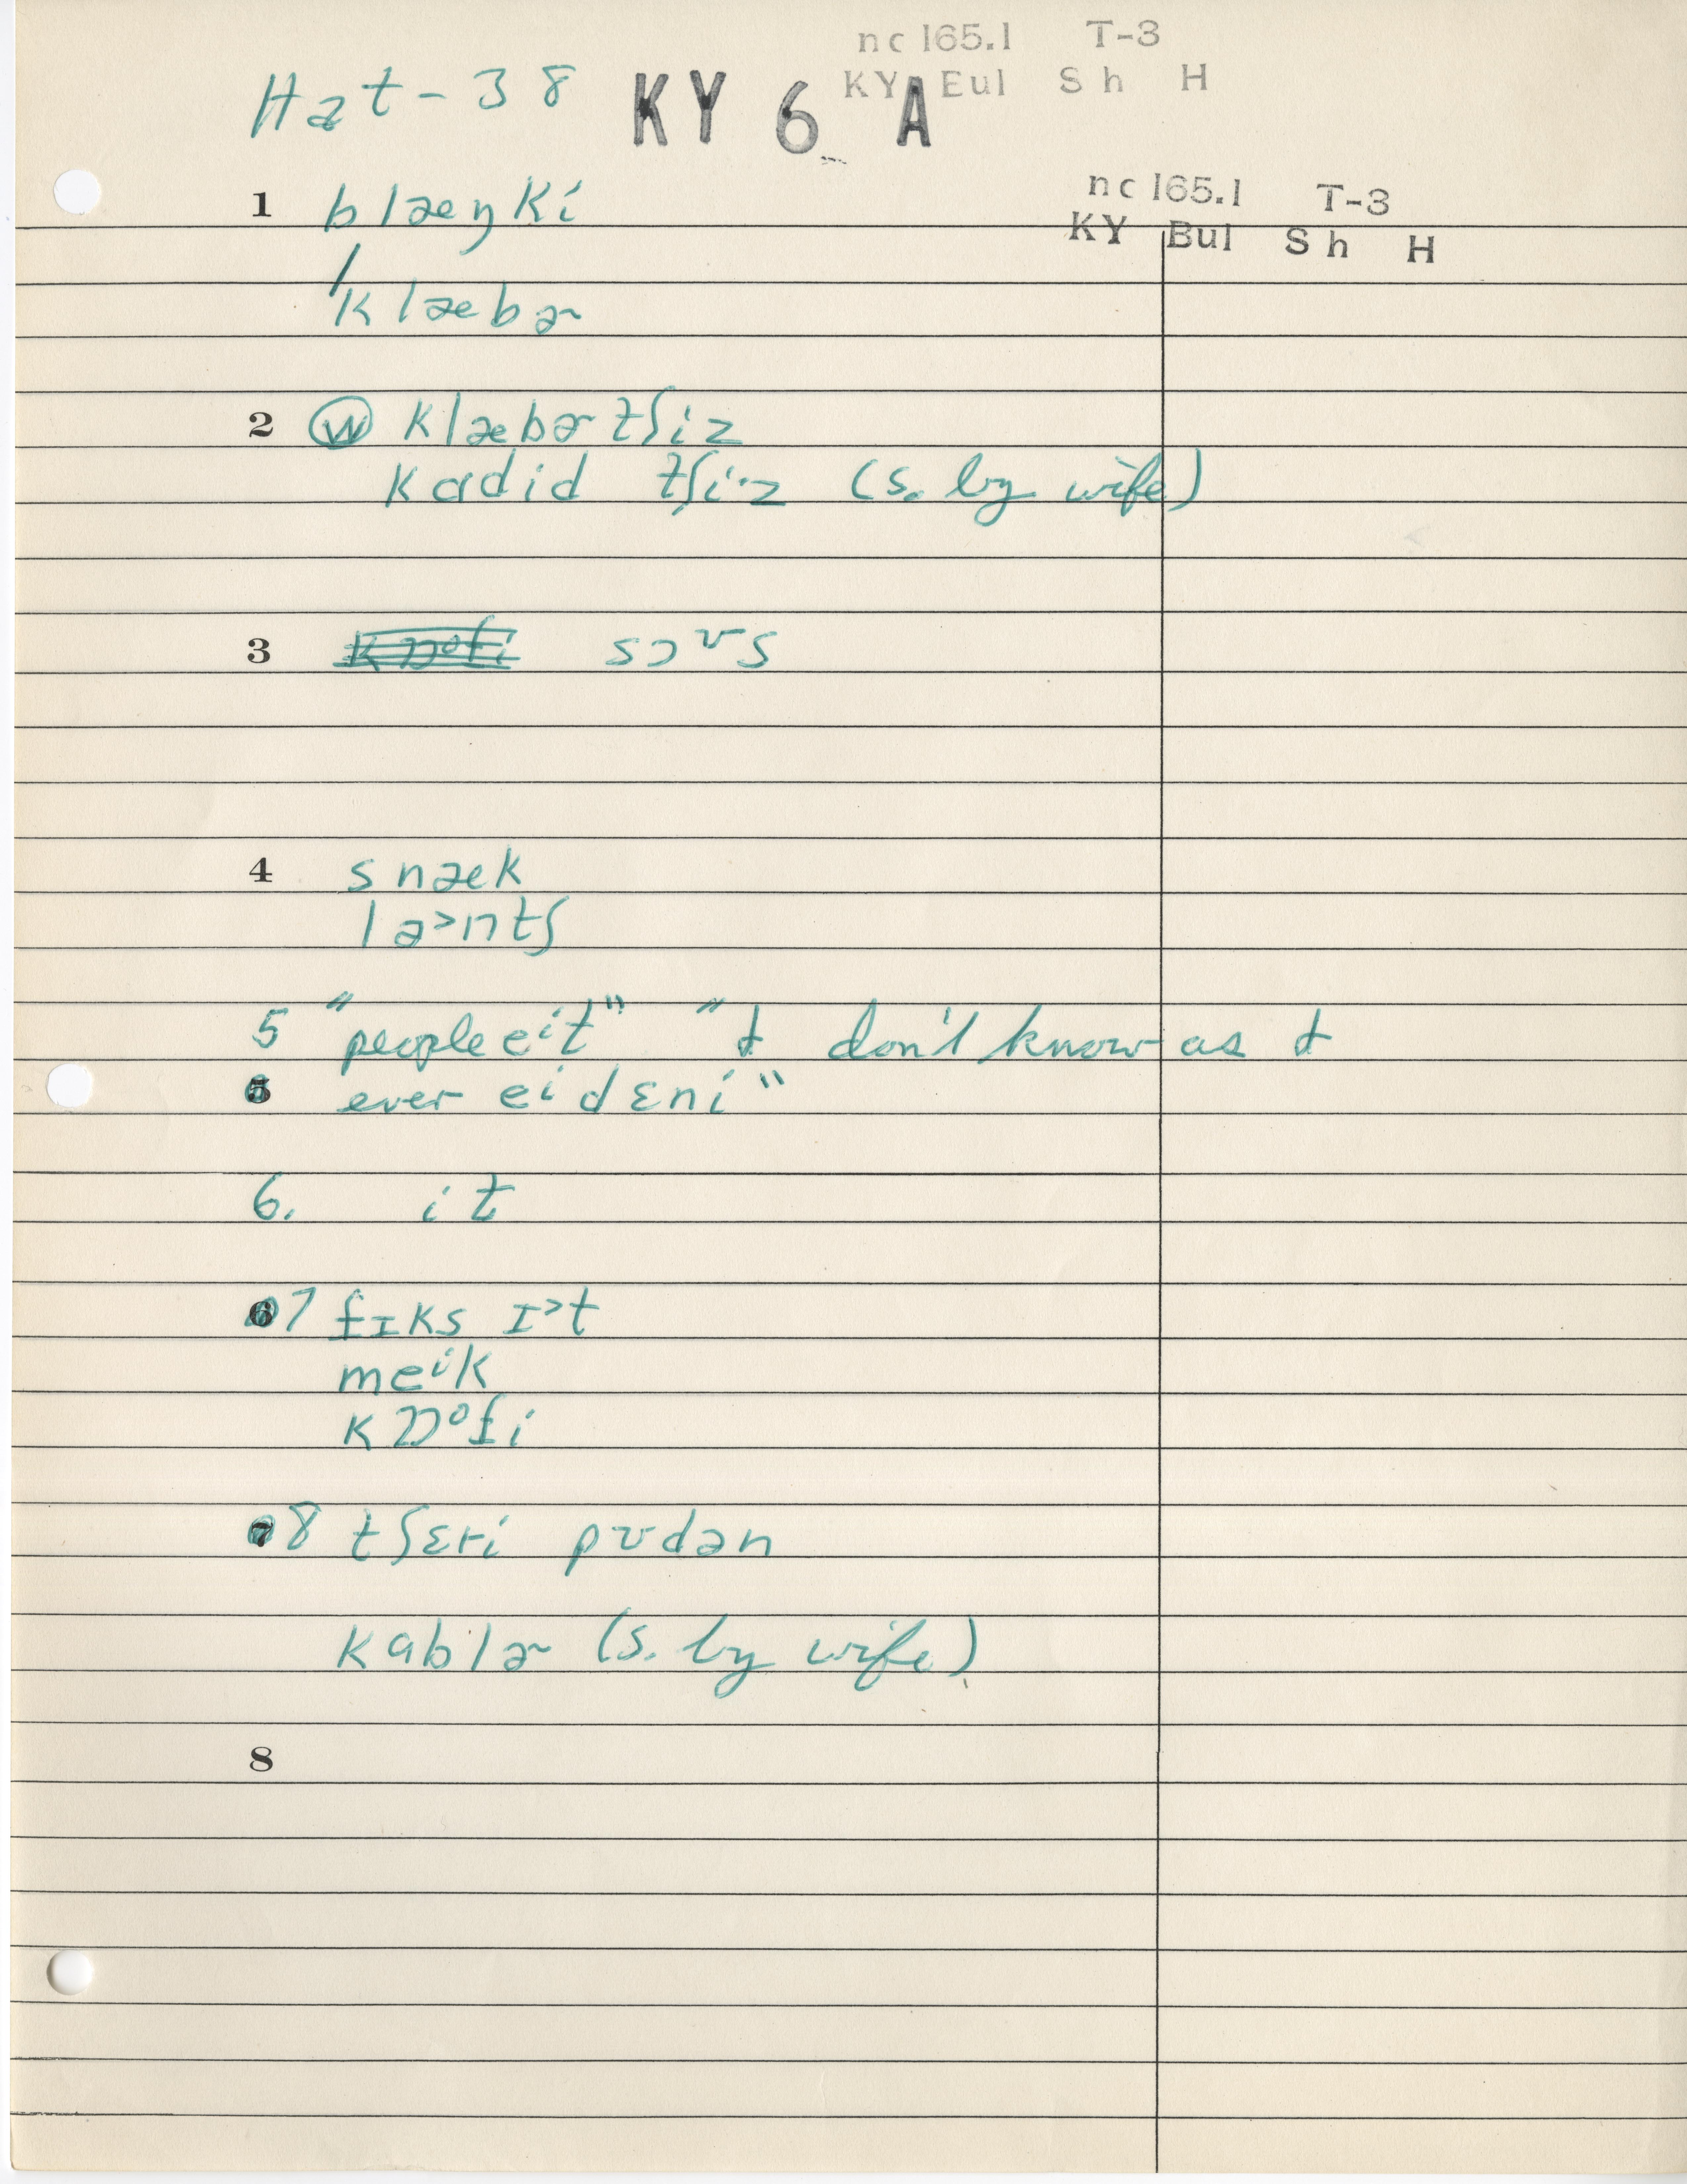 nc 165.1 T-3
Hat-38 KY 6 A KY Eul Sh H
nc 165.1 T-3
KY Bul Sh H
1 blæŋki
/
klæbɚ
2 Ⓦ klæbɚ tʃiz
kɑdid tʃi·z (s. by wife)
3 sɔᶹs
4 snæk
lə˃ntʃ
5 "people eⁱt" "I don't know as I
5 ever eⁱdɛni"
6. it
6 7 fɪks ɪ˃t
meⁱk
kɒᵒfi
7 8 tʃɛri pʊdən
kablɚ (s. by wife)
8